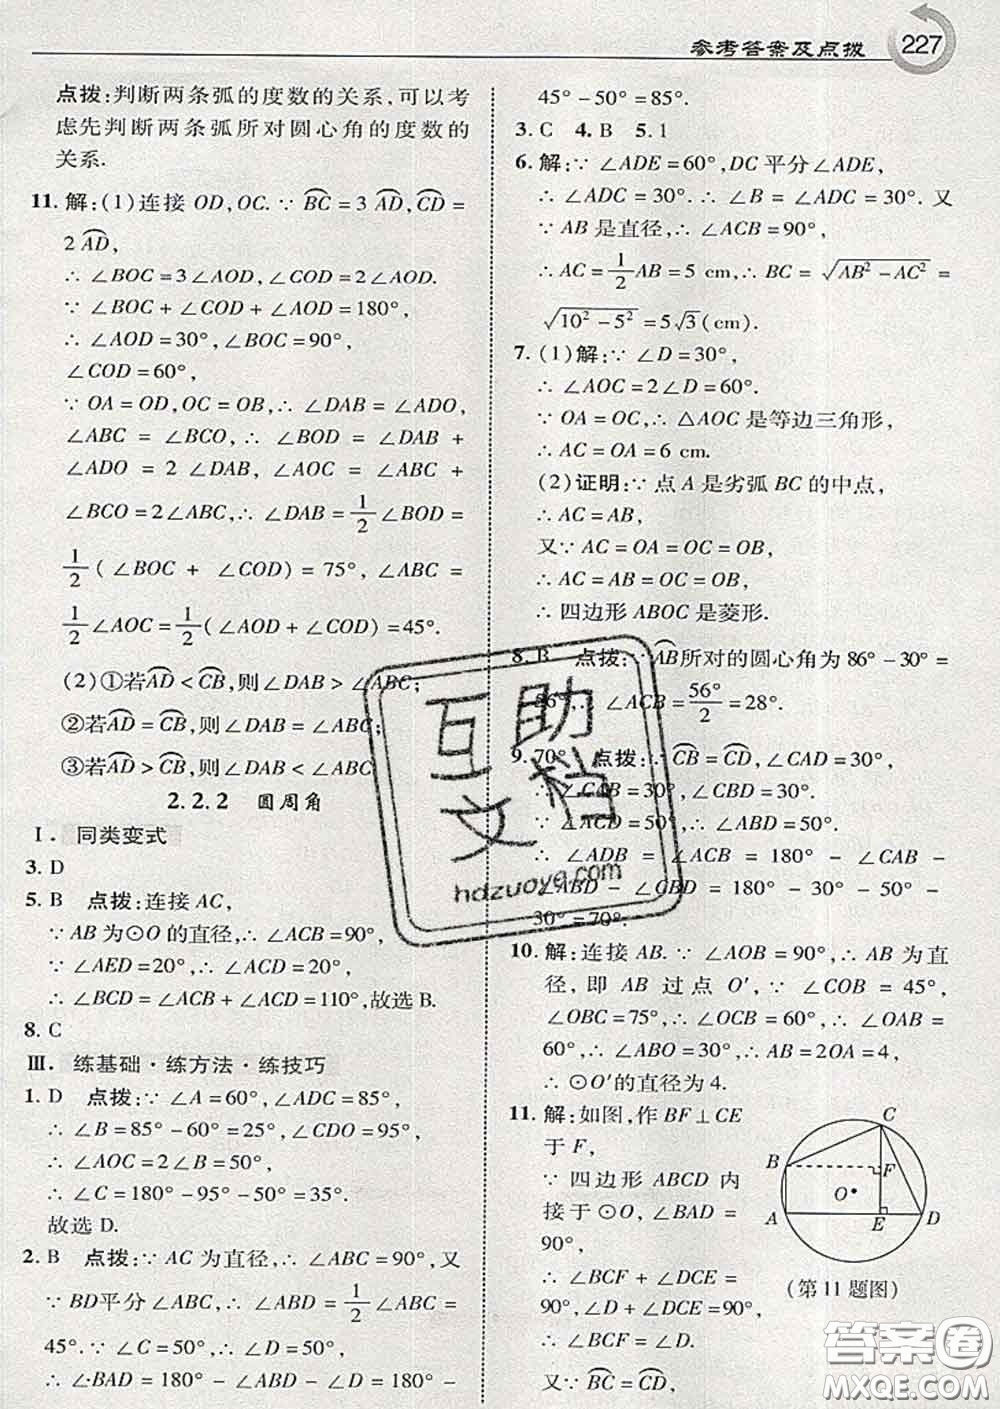 参考答案及点拨 227
点拨:判断两条弧的度数的关系,可以考
虑先判断两条弧所对圆心角的度数的
关系.
11. 解:(1)连接 OD,OC. ∵ B͡C=3 A͡D,C͡D=
2 A͡D,
∴ ∠BOC=3∠AOD,∠COD=2∠AOD.
∵ ∠BOC+∠COD+∠AOD=180°,
∴ ∠AOD=30°,∠BOC=90°,
∠COD=60°,
∵ OA=OD,OC=OB,∴ ∠DAB=∠ADO,
∠ABC=∠BCO,∴ ∠BOD=∠DAB+
∠ADO=2∠DAB,∠AOC=∠ABC+
∠BCO=2∠ABC,∴ ∠DAB=1/2∠BOD=
1/2(∠BOC+∠COD)=75°,∠ABC=
1/2∠AOC=1/2(∠AOD+∠COD)=45°.
(2)①若A͡D<C͡B,则∠DAB>∠ABC;
②若A͡D=C͡B,则∠DAB=∠ABC;
③若A͡D>C͡B,则∠DAB<∠ABC.
2.2.2 圆周角
Ⅰ. 同类变式
3. D
5. B 点拨:连接 AC,
∵ AB 为⊙O 的直径,∴ ∠ACB=90°,
∵ ∠AED=20°,∴ ∠ACD=20°,
∴ ∠BCD=∠ACB+∠ACD=110°,故选 B.
8. C
Ⅲ. 练基础·练方法·练技巧
1. D 点拨:∵ ∠A=60°,∠ADC=85°,
∴ ∠B=85°-60°=25°,∠CDO=95°,
∴ ∠AOC=2∠B=50°,
∴ ∠C=180°-95°-50°=35°.
故选 D.
2. B 点拨:∵ AC 为直径,∴ ∠ABC=90°,又
∵ BD平分∠ABC,∴ ∠ABD=1/2∠ABC=
45°.∵ ∠C=50°,∴ ∠D=50°,
∴ ∠BAD=180°-∠ABD-∠D=180°-
45°-50°=85°.
3. C 4. B 5. 1
6. 解:∵ ∠ADE=60°,DC 平分∠ADE,
∴ ∠ADC=30°.∴ ∠B=∠ADC=30°. 又
∵ AB 是直径,∴ ∠ACB=90°,
∴ AC=1/2AB=5 cm,∴ BC=√(AB²-AC²)=
√(10²-5²)=5√3(cm).
7. (1)解:∵ ∠D=30°,
∴ ∠AOC=2∠D=60°.
∵ OA=OC,∴ △AOC 是等边三角形,
∴ AC=OA=6 cm.
(2)证明:∵ 点 A 是劣弧 BC 的中点,
∴ AC=AB,
又∵ AC=OA=OC=OB,
∴ AC=AB=OC=OB,
∴ 四边形 ABOC 是菱形.
8. B 点拨:∵A͡B所对的圆心角为 86°-30°=
56°, ∠ACB=56°/2=28°.
9. 70° 点拨:∵C͡B=C͡D,∠CAD=30°,
∴ ∠CAB=30°,∠CBD=30°.
∵ ∠ACD=50°,∴ ∠ABD=50°,
∴ ∠ADB+∠ABC=180°-∠CAB-
∠ABD-∠CBD=180°-30°-50°-
30°=70°.
10. 解:连接 AB. ∵ ∠AOB=90°,∴ AB 为直
径,即 AB 过点 O′,∵ ∠COB=45°,
∠OBC=75°,∴ ∠OCB=60°,∴ ∠OAB=
60°,∴ ∠ABO=30°,∴ AB=2OA=4,
∴ ⊙O′的直径为 4.
11. 解:如图,作 BF⊥CE
于 F,
∵ 四边形 ABCD 内
接于⊙O,∠BAD=
90°,
∴ ∠BCF+∠DCE=
90°,∠D+∠DCE=90°,
∴ ∠BCF=∠D.
又∵ B͡C=C͡D,
C
B
F
O
A
E
D
(第 11 题图)
互助
文档
hdzuoye.com
答案圈
MXQE.COM